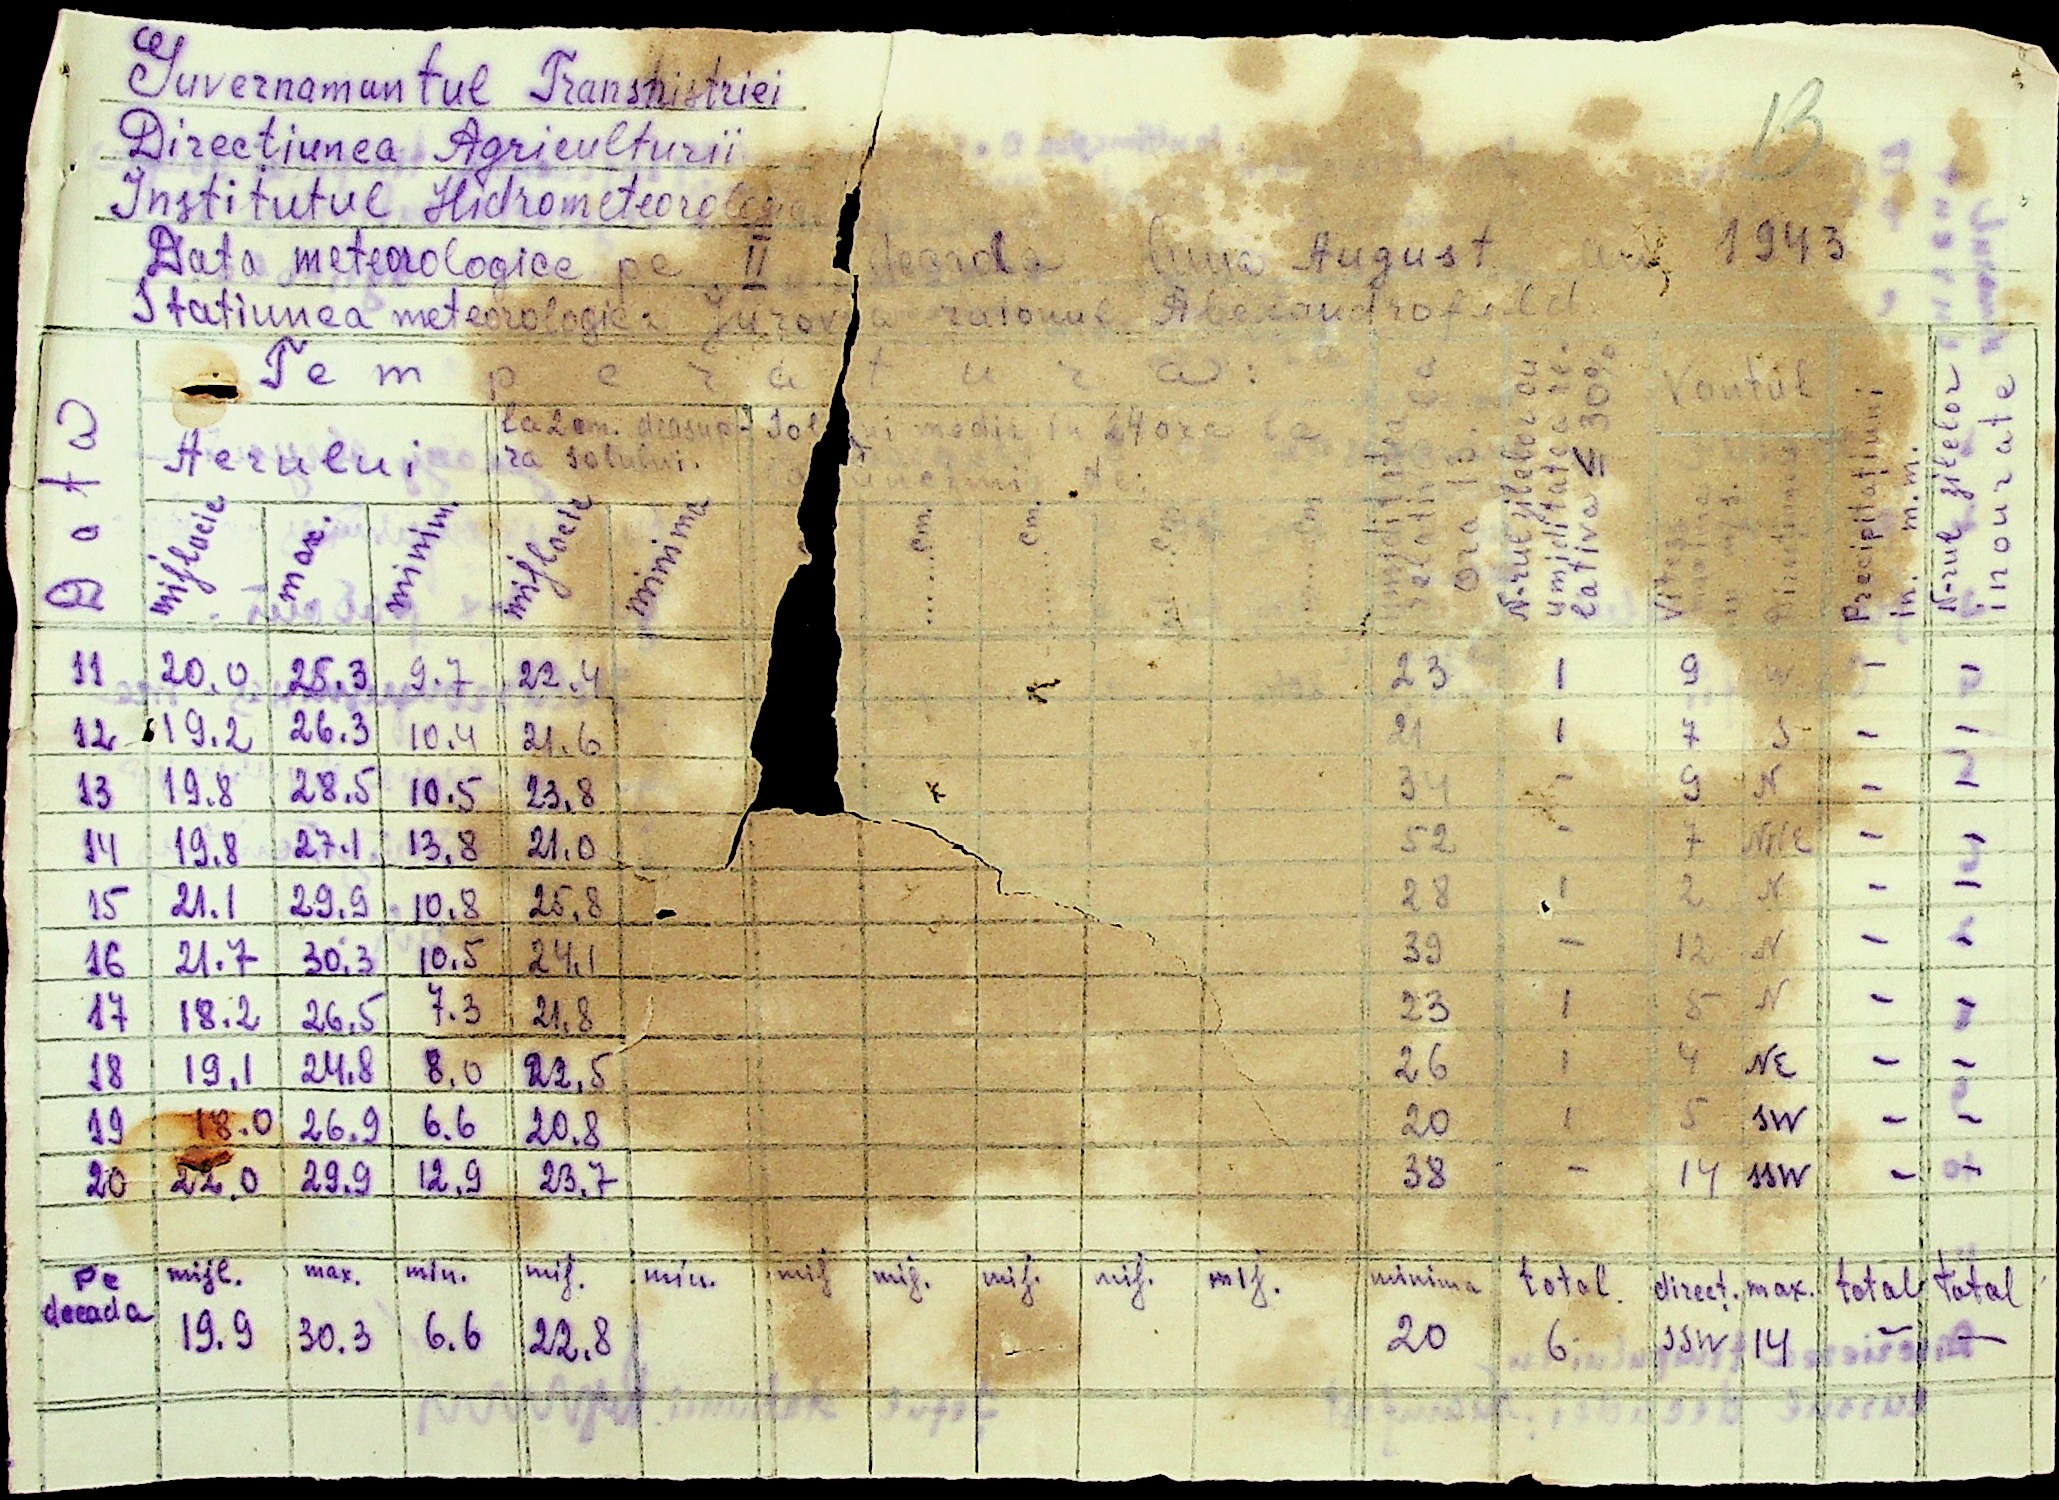 Guvernamantul Transnistriei
Directiunea Agriculturii
Institutul Hidrometeorologic
Data meteorologice pe II decada luna August an. 1943
Statiunea meteorologica raionul Alexandrofeld
13
Data
Temperatura:
Aerului
la 2 cm. deasup-
ra solului.
Solului medie in 24 ore la
adâncimi de:
mijlocie max. minim mijlocie minima
......cm. ......cm. ......cm. ......cm.
Umiditatea relativa ora 13
N-rul zilelor cu umiditatea re-
lativa ≤ 30%
Vantul
Viteza
Directiunea
Precipitațiuni
in. m.m.
N-rul zilelor
inourate
11 20.0 25.3 9.7 22.4 23 1 9 W - -
12 19.2 26.3 10.4 21.6 21 1 7 S - -
13 19.8 28.5 10.5 23.8 34 - 9 N - -
14 19.8 27.1 13.8 21.0 52 - 7 NNE - -
15 21.1 29.9 10.8 25.8 28 1 2 N - -
16 21.7 30.3 10.5 24.1 39 - 12 N - -
17 18.2 26.5 7.3 21.8 23 1 5 N - -
18 19.1 24.8 8.0 22.5 26 1 4 NE - -
19 18.0 26.9 6.6 20.8 20 1 5 SW - -
20 22.0 29.9 12.9 23.7 38 - 14 SSW - -
Pe decada mijl. max. min. mij. min. mij mij. mij. mij. mij. minima total. direct. max. total total
19.9 30.3 6.6 22.8 20 6 SSW 14 - -